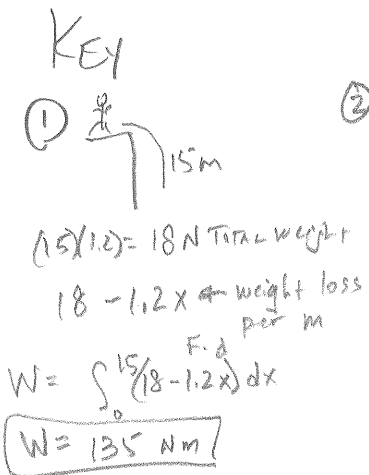 KEY
① ②
15m
(15)(1.2) = 18 N TOTAL weight
18 - 1.2x ← weight loss per m
F·d
W = ∫₀¹⁵ (18 - 1.2x) dx
W = 135 Nm